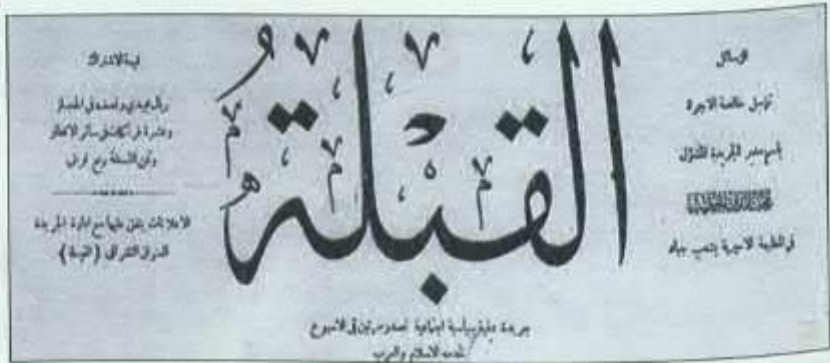 الرسائل
ترسل خالصة الاجرة
باسم مدير الجريدة المسؤول
في المطبعة الاميرية بشعب جياد
القبلة
جريدة دينية سياسية اجتماعية تصدر مرتين في الاسبوع
لخدمة الاسلام والعرب
قيمة الاشتراك
ريال مجيدي ونصف في الحجاز
وعشرة فرنكات في سائر الاقطار
وثمن النسخة ربع قرش
الاعلانات يتفق عليها مع ادارة الجريدة
العنوان التلغرافي (القبلة)